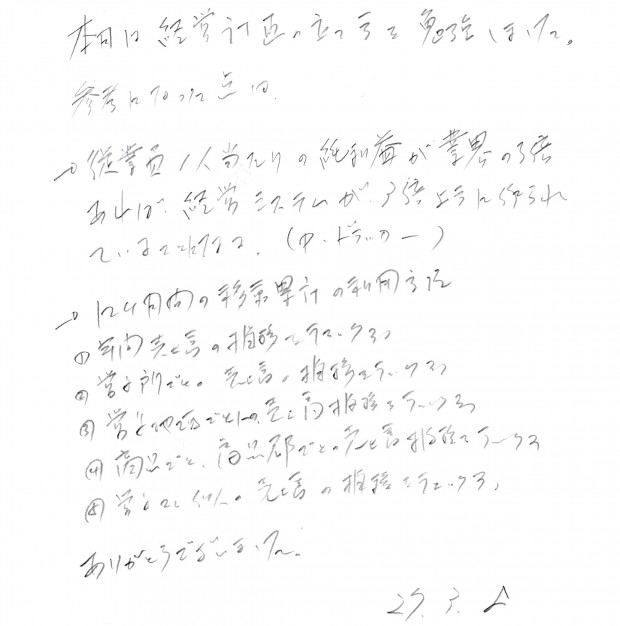 本日は経営計画の立て方を勉強しました。
参考になった点は、
→従業員1人当たりの純利益が業界の3倍
あれば、経営システムが、3倍上手に作られ
ていることになる。(P・ドラッカー)
→12ヶ月間の移動累計の利用方法
① 年間売上高の推移をチェックする
② 営業所ごとの売上高の推移をチェックする
③ 営業地区ごとの売上高推移をチェックする
④ 商品ごと、商品群ごとの売上高推移をチェックする
⑤ 営業マン個人の売上高の推移をチェックする。
ありがとうございました。
29. 3.